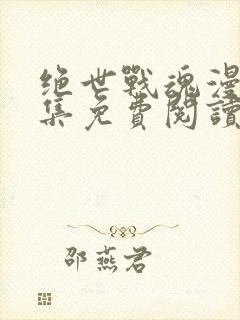 绝世戰魂漫
集免費閱讀
邵燕君